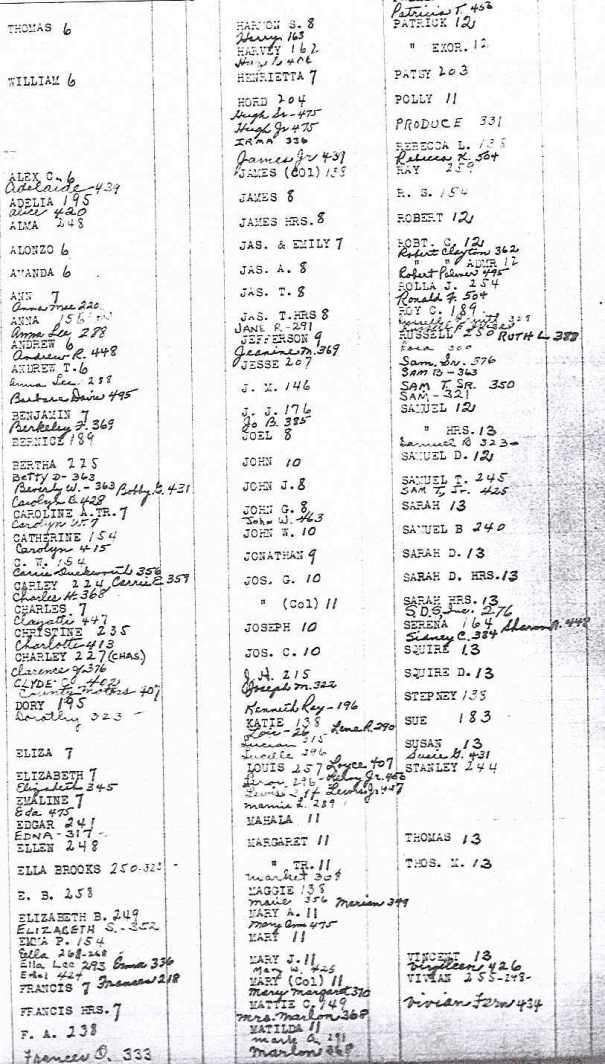 THOMAS 6
WILLIAM 6
ALEX C. 6
Adelaide 439
ADELIA 195
alice 420
ALMA 248
ALONZO 6
AMANDA 6
ANN 7
Anna Mae 220
ANNA 156
Anna Lee 288
ANDREW 6
Andrew R. 448
ANDREW T. 6
Anna Lee 288
Barbara Davis 495
BENJAMIN 7
Berkeley F. 369
BERNICE 189
BERTHA 225
BETTY D- 363
Beverly W. - 363 Bobby G. 431
Carolyn B 428
CAROLINE A.TR. 7
CATHERINE 154
Carolyn 415
C. W. 154
Carrie Duckworth 356
CARLEY 224 Carrie E 359
Charles H. 368
CHARLES 7
Clayatti 447
CHRISTINE 235
Charlotte 413
CHARLEY 227 (CHAS)
Clarence J. 376
CLYDE Co 402
County Motors 407
DORY 195
Dorothy 323 -
ELIZA 7
ELIZABETH 7
Elizabeth 345
EMALINE 7
Eda 475
EDGAR 241
EDNA -317-
ELLEN 248
ELLA BROOKS 250-323 -
E. B. 258
ELIZABETH B. 249
ELIZABETH S. -352
EMMA P. 154
Ella 268-268
Ella Lee 293 Emma 336
Ethel 424
FRANCIS 7 Frances 218
FRANCIS HRS. 7
F. A. 238
Frances O. 333
HARMON S. 8
Harry 163
HARVEY 162
HENRIETTA 7
HORD 204
Hugh Sr - 475
Hugh Jr 475
IRMA 336
James Jr 439
JAMES (COl) 138
JAMES 8
JAMES HRS. 8
JAS. & EMILY 7
JAS. A. 8
JAS. T. 8
JAS. T.HRS 8
JANE R. -291
JEFFERSON 9
Jeanine M. 369
JESSE 207
J. M. 146
J. J. 176
Jo B. 385
JOEL 8
JOHN 10
JOHN J. 8
JOHN G. 8
John W. 463
JOHN W. 10
JONATHAN 9
JOS. G. 10
" (Col) 11
JOSEPH 10
JOS. C. 10
J. H. 215
Joseph M. 322
Kenneth Ray - 196
KATIE 138
Lois - 26 - Lena R. 290
Lucian 315
Lucille 296
LOUIS 257 Loyce 407
Leroy Jr. 456
Lewis Jr 447
Mamie L. 289
MAHALA 11
MARGARET 11
" TR. 11
Market 308
MAGGIE 138
Marie 356 Marian 349
MARY A. 11
Mary Ann 475
MARY 11
MARY J. 11
Mary W. 425
MARY (Col) 11
Mary Margaret 370
MATTIE C. 149
Mrs. Marlon 368
MATILDA 11
Mark A. 291
Marlon 368
Patricia T. 456
PATRICK 12
" EXOR. 12
PATSY 203
POLLY 11
PRODUCE 331
REBECCA L. 138
Rebecca K. 504
RAY 259
R. S. 154
ROBERT 12
ROBT. C. 12
Robert Clayton 362
" " ADMR 12
Robert Palmer 495
ROLLA J. 254
Ronald F. 504
ROY C. 189
RUSSELL 250 RUTH L. 388
Sam. Sr. 376
SAM B - 363
SAM T SR. 350
SAM - 321
SAMUEL 12
" HRS. 13
Samuel B 323-
SAMUEL D. 12
SAMUEL T. 245
SAM T, Jr. 425
SARAH 13
SAMUEL B 240
SARAH D. 13
SARAH D. HRS. 13
SARAH HRS. 13
S.D.S. Inc. 276
SERENA 164 Sharon A. 448
Sidney C. 384
SQUIRE 13
SQUIRE D. 13
STEPNEY 138
SUE 183
SUSAN 13
Susie G. 431
STANLEY 244
THOMAS 13
THOS. M. 13
VINCENT 13
Virgileen 426
VIVIAN 255-298-
Vivian Fern 434